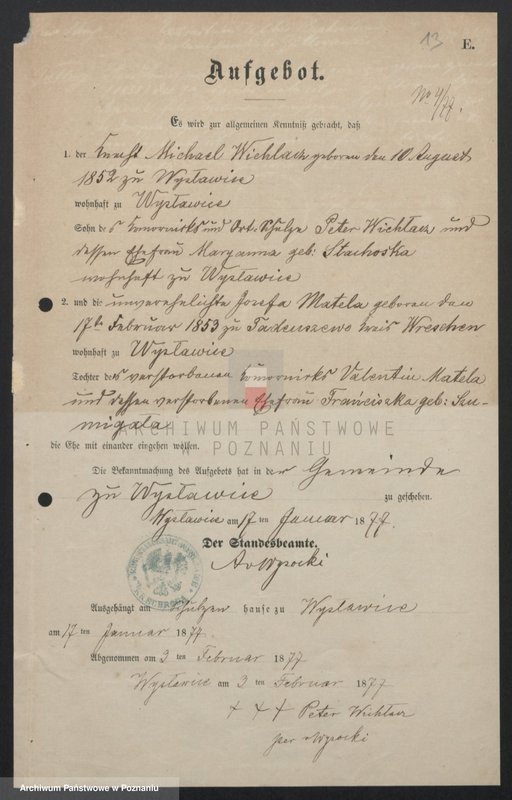 13
E.
Aufgebot.
No 4/77.
Es wird zur allgemeinen Kenntniß gebracht, daß
1. der Knecht Michael Wichłacz geboren den 10 August
1852 zu Wysławice
wohnhaft zu Wysławice
Sohn des Komorniks und Ort-Schulze Peter Wichłacz und
dessen Ehefrau Maryanna geb: Stachoska
wohnhaft zu Wysławice
2. und die unverehelichte Josefa Matela geboren den
17te Februar 1853 zu Tadeuszewo Kreis Wreschen
wohnhaft zu Wysławice
Tochter des verstorbenen Komorniks Valentin Matela
und dessen verstorbenen Ehefrau Franciszka geb: Szu-
migala
die Ehe mit einander eingehen wollen.
Die Bekanntmachung des Aufgebots hat in der Gemeinde
zu Wysławice zu geschehen.
Wysławice am 17 ten Januar 1877.
Der Standesbeamte.
AvWysocki
Ausgehängt am Schulzen hause zu Wysławice
am 17 ten Januar 1877
Abgenommen am 2 ten Februar 1877
Wysławice am 3 ten Februar 1877
+ + + Peter Wichłacz
per Wysocki
ARCHIWUM PAŃSTWOWE
W POZNANIU
Archiwum Państwowe w Poznaniu